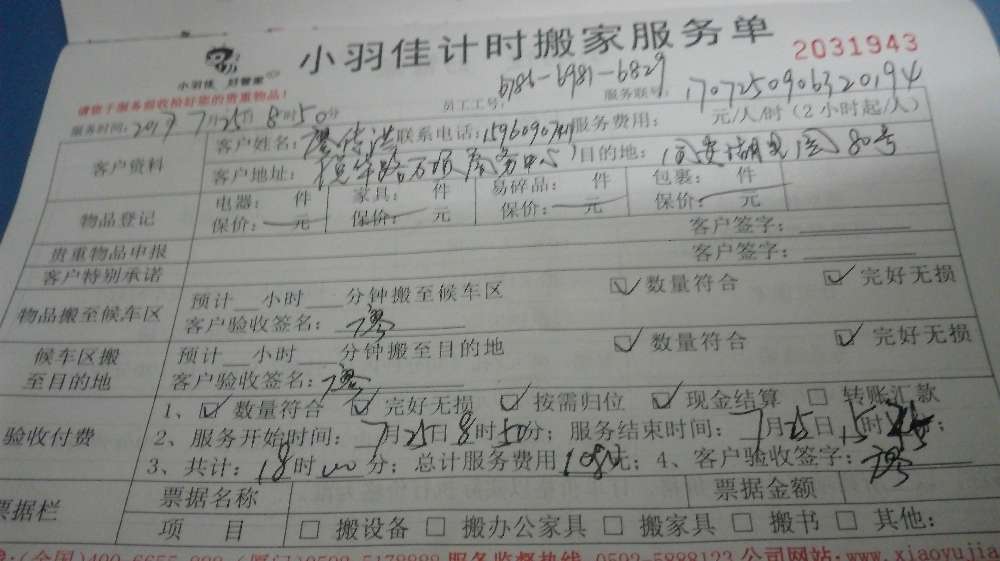 小羽佳计时搬家服务单
2031943
小羽佳 好管家
请您于服务前收拾好您的贵重物品!
员工工号: 6786-6981-6829 服务联号: 1707250906320194
服务时间: 2017 7月25日 8时50分
客户资料
客户姓名: 联系电话: 服务费用: 元/人/时 (2小时起/人)
客户地址: 目的地: 80号
物品登记
电器: 件 家具: 件 易碎品: 件 包裹: 件
保价: 元 保价: 元 保价: 元 保价: 元
贵重物品申报 客户签字:
客户特别承诺 客户签字:
物品搬至候车区
预计 小时 分钟搬至候车区 数量符合 完好无损
客户验收签名:
候车区搬至目的地
预计 小时 分钟搬至目的地 数量符合 完好无损
客户验收签名:
验收付费
1、 数量符合 完好无损 按需归位 现金结算 转账汇款
2、服务开始时间: 7月25日8时50分; 服务结束时间: 7月25日15时
3、共计: 18时00分; 总计服务费用1080元; 4、客户验收签字:
票据栏 票据名称 票据金额
项 目 搬设备 搬办公家具 搬家具 搬书 其他:
服务监督热线 0592-5888123 公司网站: www.xiaoyujia